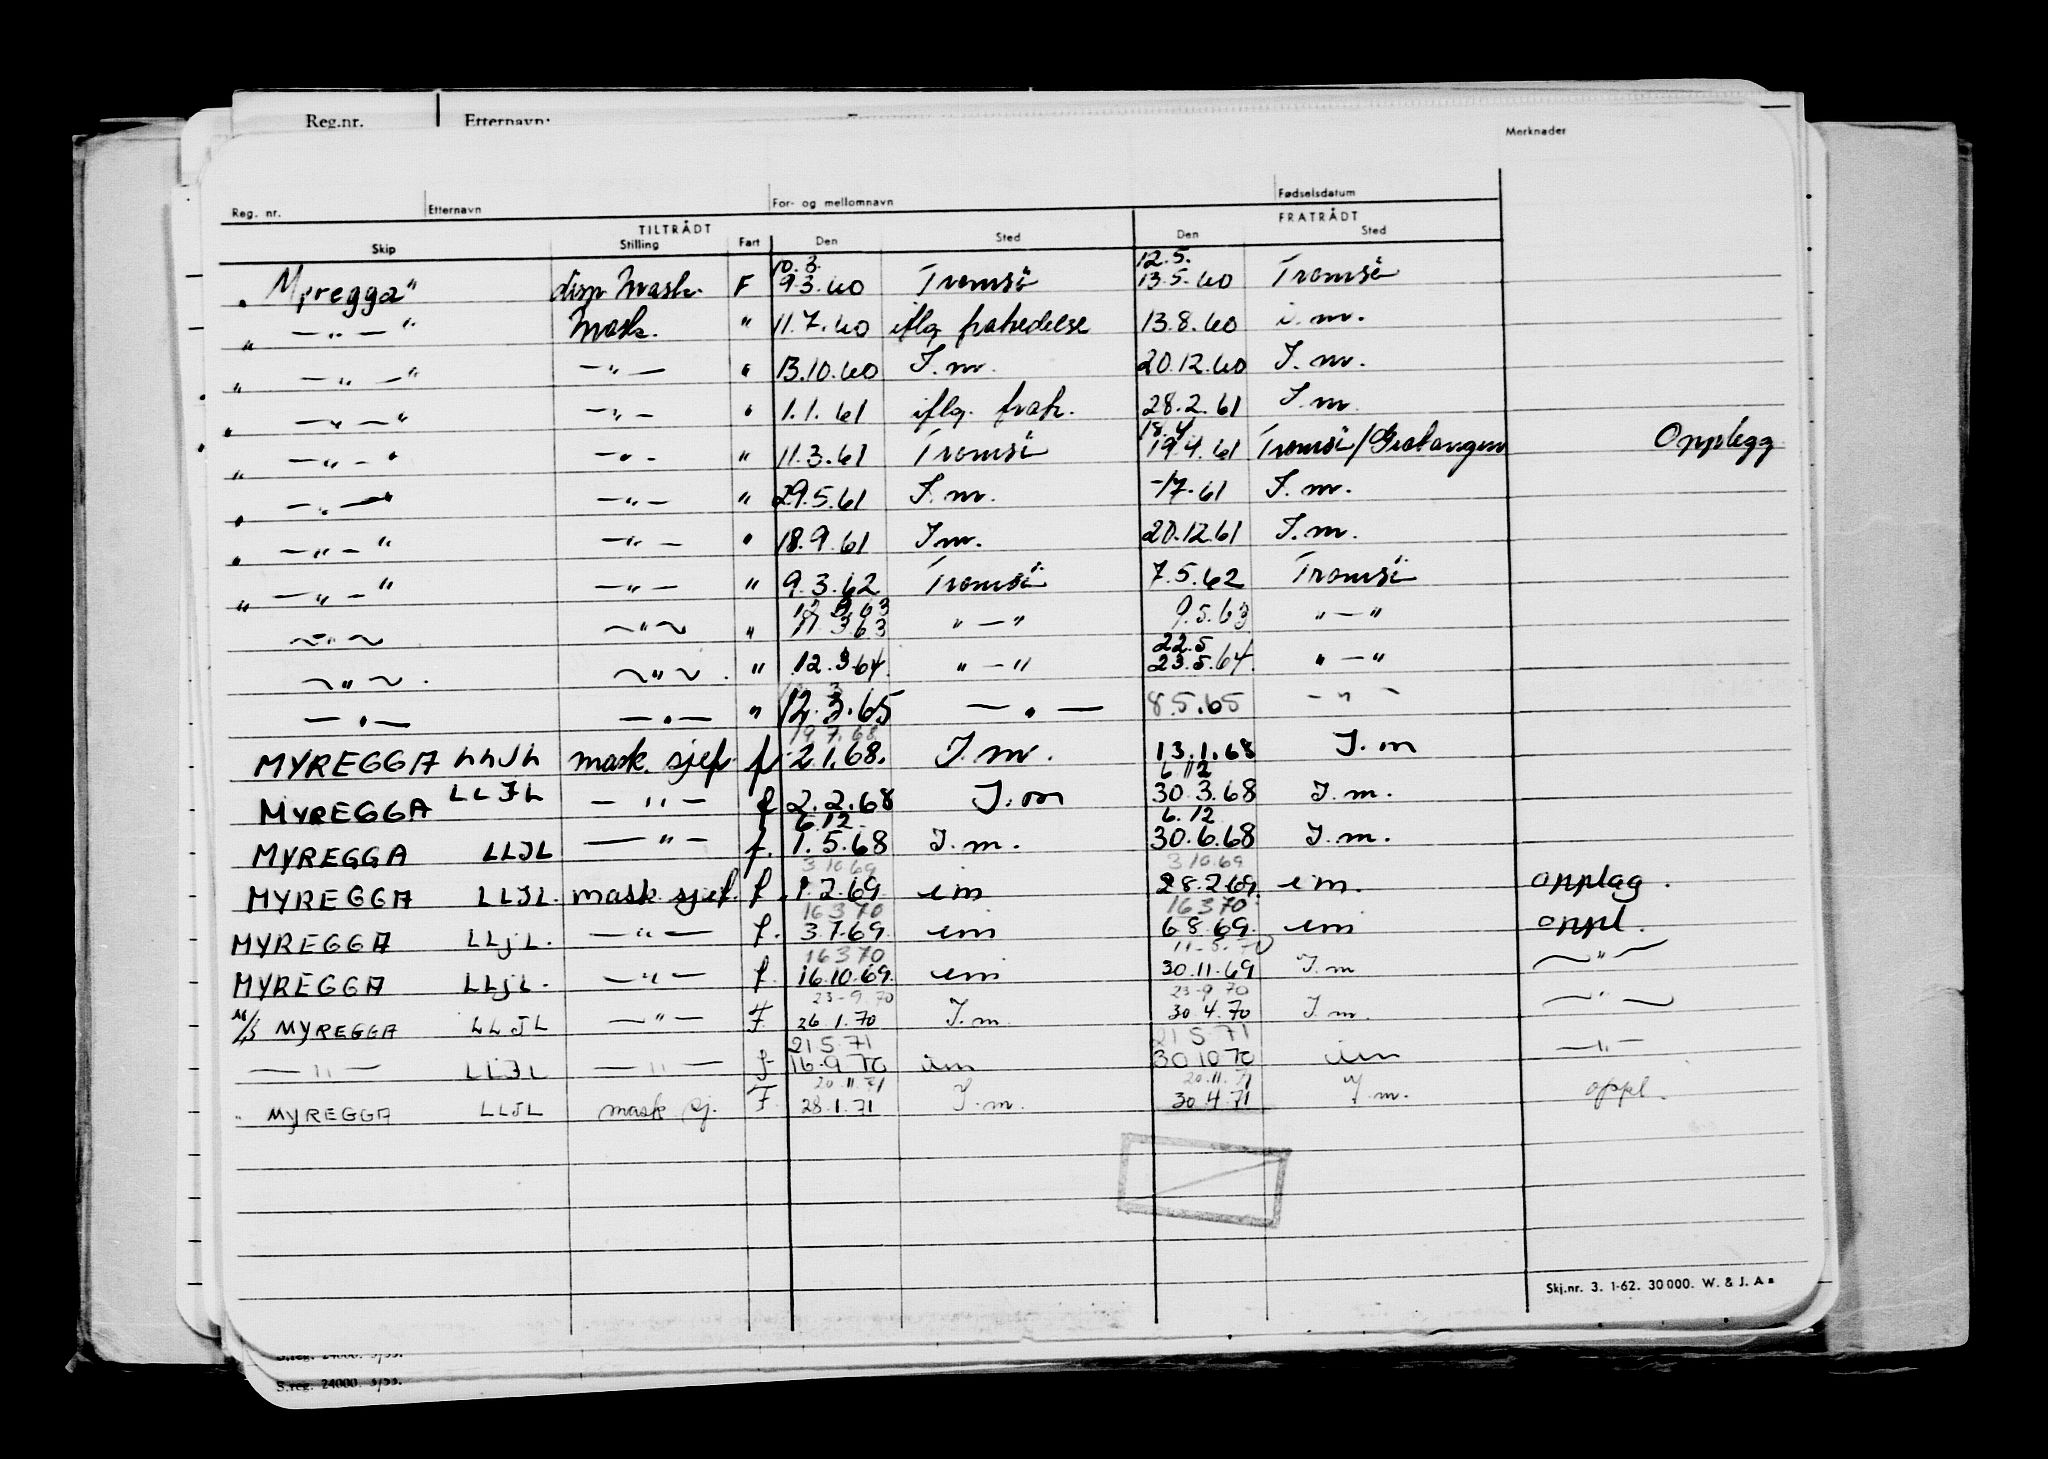 Reg.nr. Etternavn:
Merknader
Reg. nr. Etternavn For- og mellomnavn Fødselsdatum
TILTRÅDT FRATRÅDT
Skip Stilling Fart Den Sted Den Sted
10.3. 12.5.
„ Myregga" disp Mask. F 9.3.60 Tromsö 13.5.60 Tromsö
„ — " — " Mask. " 11.7.60 iflg fratredelse 13.8.60 i.m.
„ — " — " — " — " 13.10.60 I.m. 20.12.60 I.m.
„ — " — " — " — " 1.1.61 iflg. fratr. 28.2.61 I.m
18.4
„ — " — " — " — " 11.3.61 Tromsö 19.4.61 Tromsö/Gratangen Opplegg
„ — " — " — " — " 29.5.61 I.m. -17.61 I.m.
„ — " — " — " — " 18.9.61 I.m. 20.12.61 I.m.
„ — " — " — " — " 9.3.62 Tromsö 7.5.62 Tromsö
12 3 63
~ " ~ ~ " ~ " 11 3.63 " — " 9.5.63 " — "
22.5
~ " ~ . ~ " ~ . " 12.3.64. " — " 23.5.64. " — "
— " — — " — " 12.3.65 — " — 8.5.65 — " —
19.7.68
MYREGGA LLJL mask. sjef f 2.1.68. I.m. 13.1.68 I.m
6 12
MYREGGA LLJL — " — f 2.2.68 I.m 30.3.68 I.m.
6.12 6.12
MYREGGA LLJL — " — f. 1.5.68 I.m. 30.6.68 I.m.
3 10.69 3 10.69
MYREGGA LLJL. mask. sjef. f. 1.2.69. im 28.2.69. im. opplag.
16 3 70 16 3 70
MYREGGA LLJL. — " — f. 3.7.69. im 6.8.69. im oppl.
16 3 70 11-5.70
MYREGGA LLJL. — " — f. 16.10.69. im 30.11.69 I.m ~ " ~
23-9.70 23-9 70
M/S MYREGGA LLJL — " — F. 26.1.70 I.m. 30.4.70 I.m. ~ " ~
21 5.71 21 5 71
— " — LLJL — " — f 16.9 70 im 30 10 70 im — " —
20.11.71 20.11.71
" MYREGGA LLJL mask sj. F. 28.1.71 I.m. 30.4.71 I.m. oppl.
Skj.nr. 3. 1-62. 30000. W. & J. A s
S.reg. 24000. 3/53.
S.reg. 24000. 3/53.